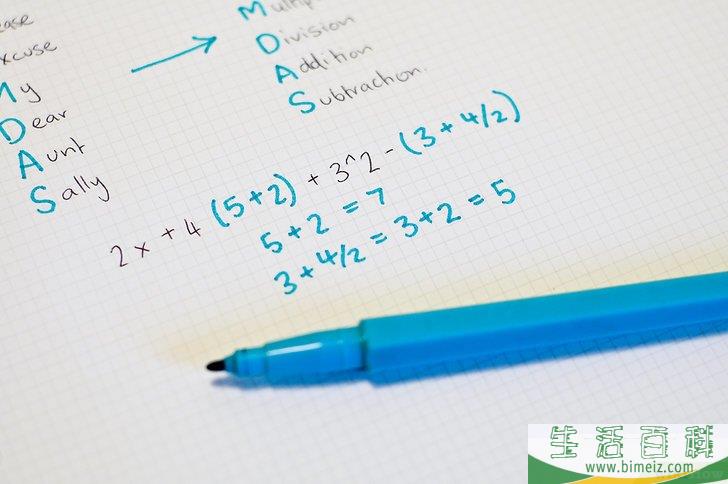 My
Dear
Aunt
Sally
Division
Addition
Subtraction.
2x + 4 (5+2) + 3^2 - (3 + 4/2)
5 + 2 = 7
3 + 4/2 = 3 + 2 = 5
生活百科
www.bimeiz.com